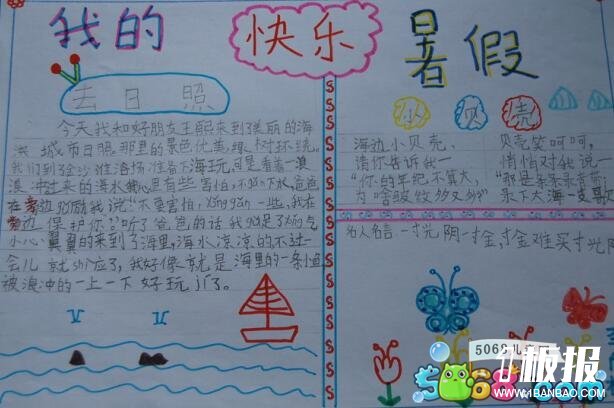 我的 快乐 暑假
去日照
今天我和好朋友王熙来到了美丽的海
滨城市日照,那里的景色优美,绿树环绕。
我们到金沙滩浴场准备下海玩,可是看着一浪
浪冲过来的海水我心里有些害怕,不敢下水,爸爸
在旁边鼓励我说“不要害怕,yǒng敢一些,我在
旁边保护你”听了爸爸的话我gǔ足了yǒng气
小心翼翼的来到了海里,海水凉凉的不过一
会儿就shì应了,我好像就是海里的一条小鱼
被浪冲的一上一下好玩jí了。
小贝壳
海边小贝壳、
请你告诉我一
“你的年纪不算大、
为啥皱纹多又多”
贝壳笑呵呵,
悄悄对我说一
录下大海一支歌
名人名言 一寸光阴一寸金,寸金难买寸光阴
5068儿
5068.com
1板报
WWW.1BANBAO.COM